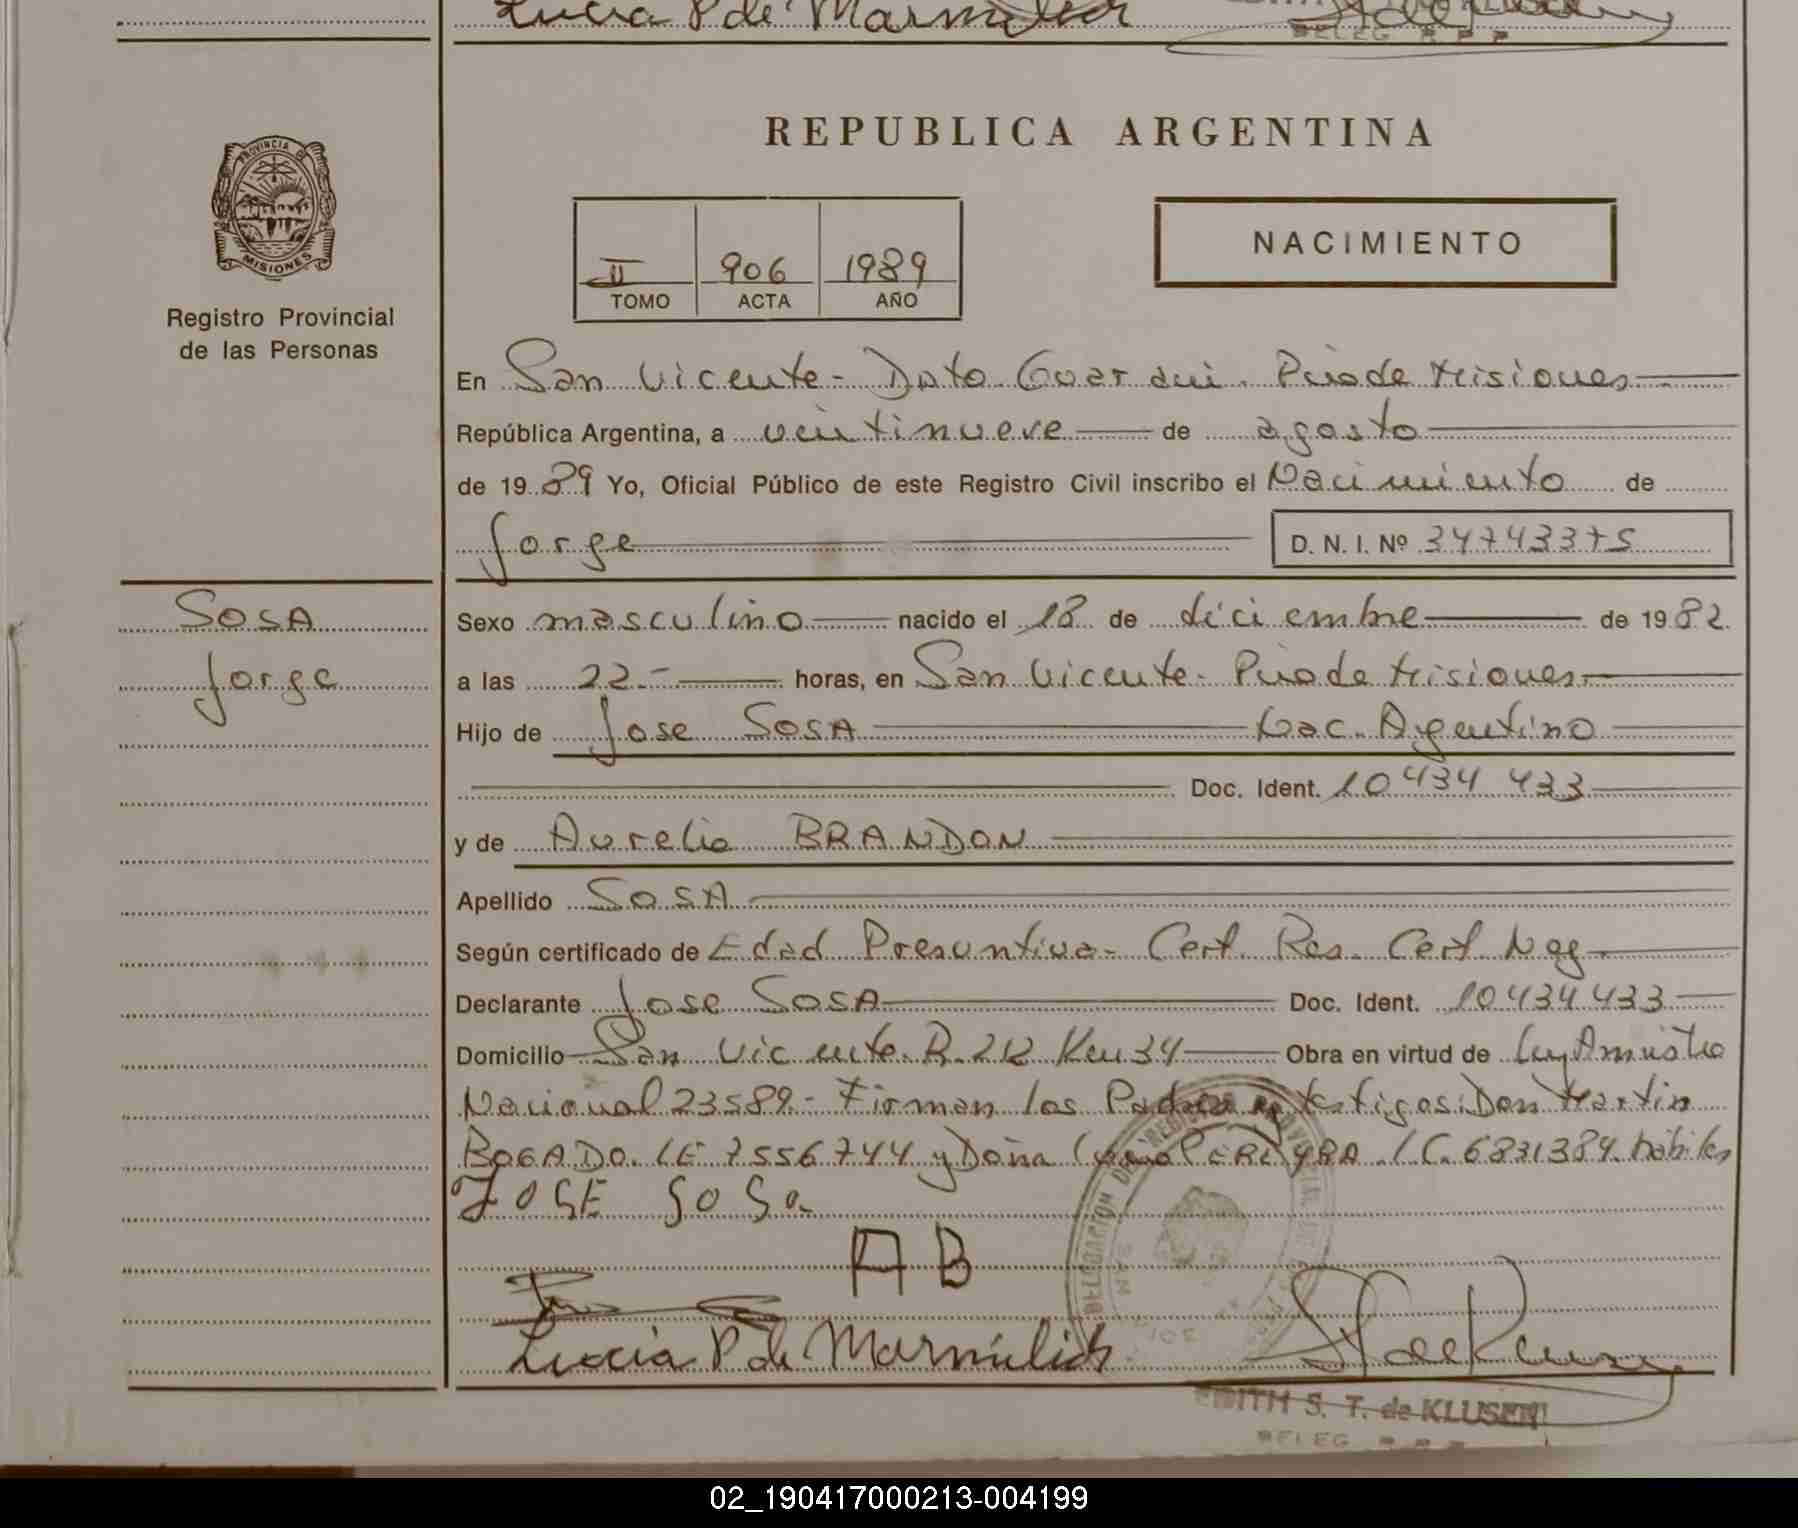 Lucia P de Marmilich
BELEG R P P
REPUBLICA ARGENTINA
PROVINCIA DE
MISIONES
Registro Provincial
de las Personas
II 906 1989
TOMO ACTA AÑO
NACIMIENTO
En San Vicente - Dpto Guarani. Pcia de Misiones
República Argentina, a veintinueve de agosto
de 1989 Yo, Oficial Público de este Registro Civil inscribo el Nacimiento de
Jorge D. N. I. Nº 34743375
SOSA
Jorge
Sexo masculino nacido el 18 de diciembre de 1982
a las 22.- horas, en San Vicente - Pcia de Misiones
Hijo de Jose SOSA Nac. Argentino
Doc. Ident. 10 434 433
y de Aurelia BRANDON
Apellido SOSA
Según certificado de Edad Presuntiva - Cert. Res. Cert Neg
Declarante Jose SOSA Doc. Ident. 10 434 433
Domicilio San Vicente. R. 212 Km 34 Obra en virtud de Ley Amnistia
Nacional 23589.- Firman los Padres testigos: Don Martin
BOGADO. LE 7556744 y Doña PEREYRA LC. 6831384. habiles
JOSE SOSa
A B
Lucia P de Marmilich
EDITH S. T. de KLUSEN
BELEG
02_190417000213-004199